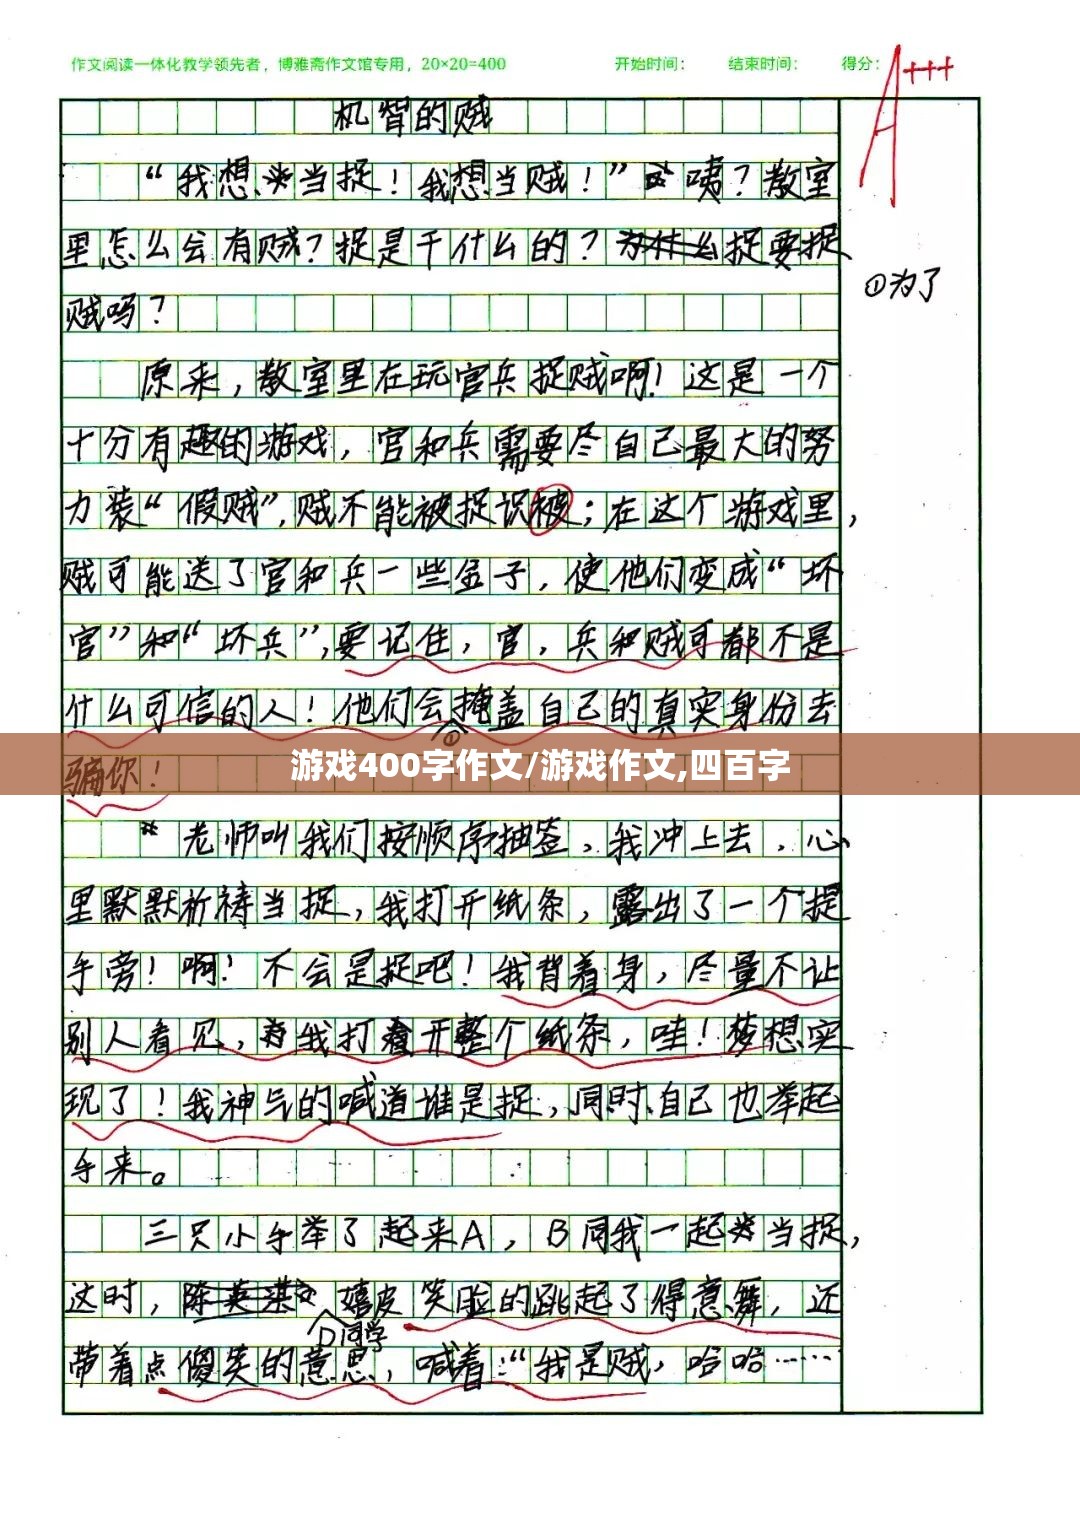 作文阅读一体化教学领先者，博雅斋作文馆专用，20×20=400 开始时间： 结束时间： 得分：
A+++
机智的贼
“我想当捉！我想当贼！”咦？教室
里怎么会有贼？捉是干什么的？捉要捉
①为了
贼吗？
原来，教室里在玩官兵捉贼啊！这是一个
十分有趣的游戏，官和兵需要尽自己最大的努
力装“假贼”，贼不能被捉识被；在这个游戏里，
贼可能送了官和兵一些金子，使他们变成“坏
官”和“坏兵”，要记住，官，兵和贼可都不是
什么可信的人！他们会掩盖自己的真实身份去
①
骗你！
游戏400字作文/游戏作文,四百字
老师叫我们按顺序抽签，我冲上去，心
里默默祈祷当捉，我打开纸条，露出了一个提
手旁！啊！不会是捉吧！我背着身，尽量不让
别人看见，我打开整个纸条，哇！梦想实
现了！我神气的喊道谁是捉，同时自己也举起
手来。
三只小手举了起来A，B同我一起当捉，
这时，嬉皮笑脸的跳起了得意舞，还
D同学
带着点傻笑的意思，喊着：“我是贼，哈哈……